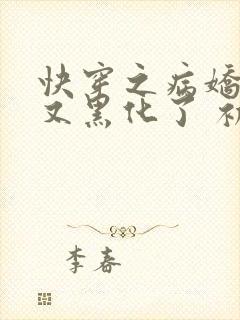 快穿之病嬌
又黑化了
李春